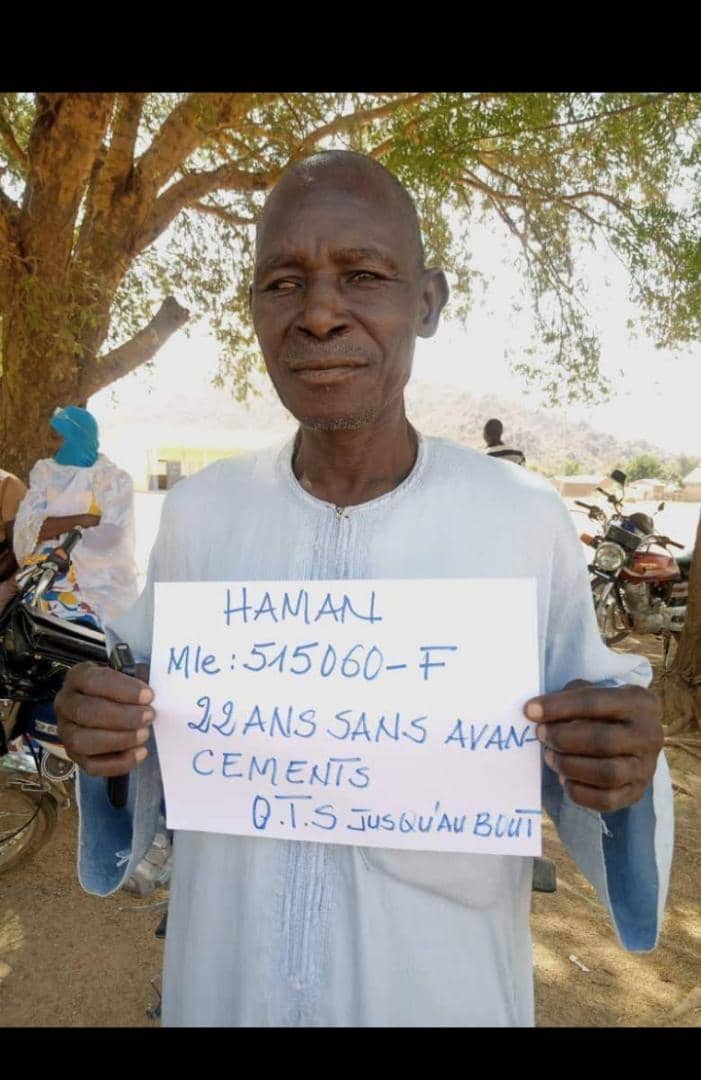 HAMAN
Mle: 515060-F
22 ANS SANS AVAN-
CEMENTS
O.T.S JUSQU'AU BOUT